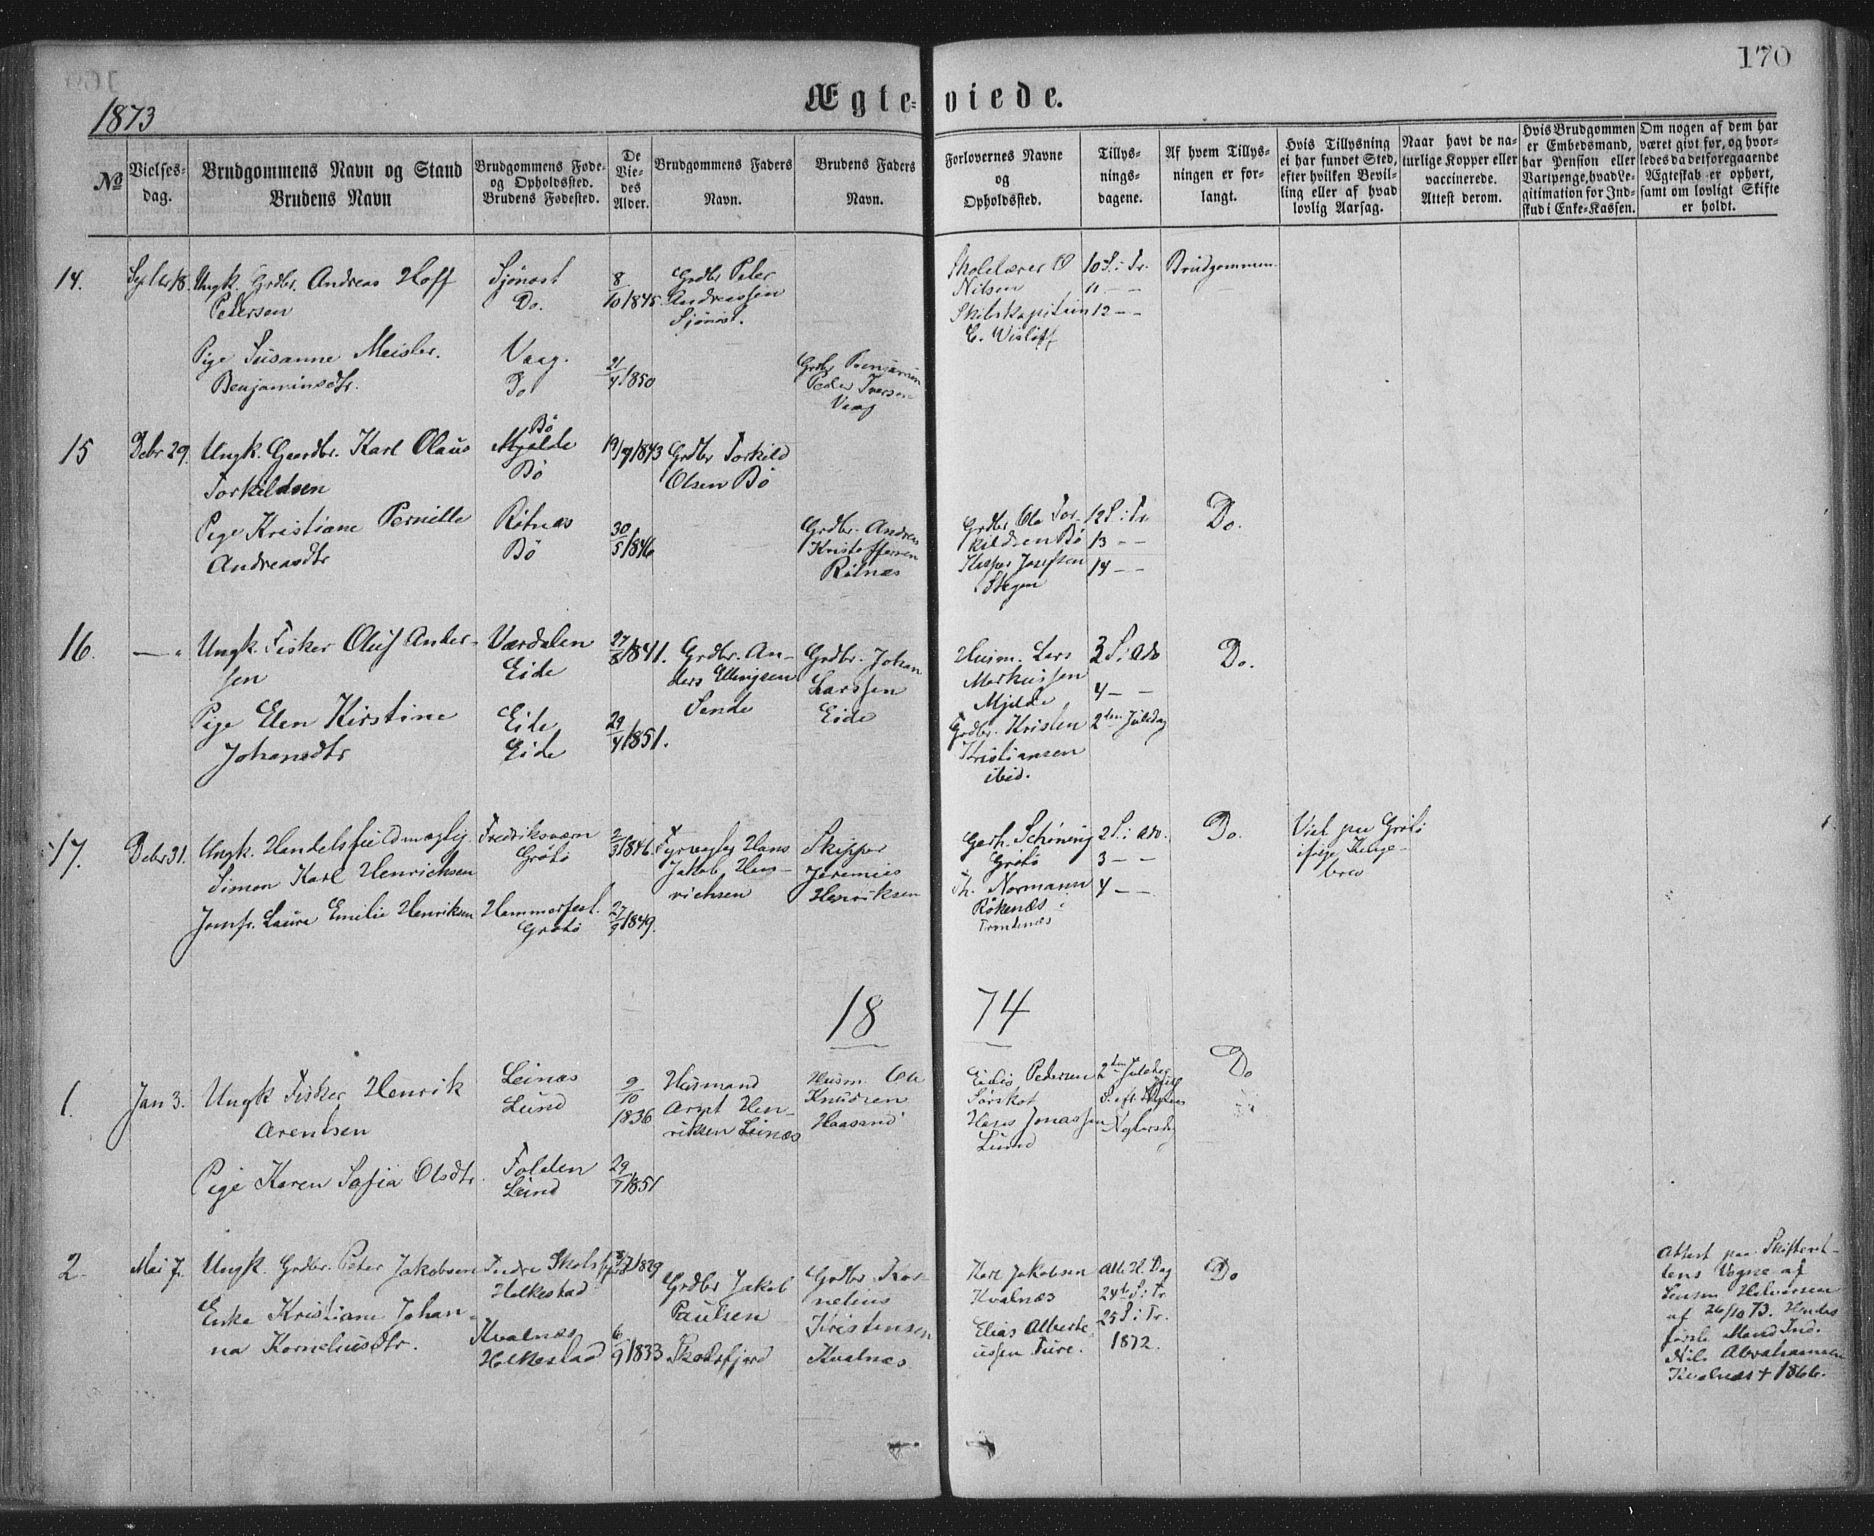 170
1873
Ægte-viede.
No
Vielses-
dag.
Brudgommens Navn og Stand
Brudens Navn
Brudgommens Føde-
og Opholdssted.
Brudens Fødested.
De
Vie-
des
Alder.
Brudgommens Faders
Navn.
Brudens Faders
Navn.
Forlovernes Navne
og
Opholdssted.
Tillys-
nings-
dagene.
Af hvem Tillys-
ningen er for-
langt.
Hvis Tillysning
ei har fundet Sted,
efter hvilken Bevil-
ling eller af hvad
lovlig Aarsag.
Naar havt de na-
turlige Kopper eller
vaccinerede.
Attest derom.
Hvis Brudgommen
er Embedsmand,
har Pension eller
Vartpenge, hvad Le-
gitimation for Ind-
skud i Enke-Kassen.
Om nogen af dem har
været givt før, og hvor-
ledes da det foregaaende
Ægteskab er ophørt,
samt om lovligt Skifte
er holdt.
14.
Septbr 18.
Ungk. Grdbr. Andreas Hoff
Petersen
Pige Susanne Meisler.
Benjaminsdtr.
Sjönost
Do.
Vaag.
Do
8/10 1845.
21/4 1850
Grdbr Peter
Andreassen
Sjönost.
Grdbr Benjamin
Peder Iversen
Vaag
Skolelærer O
Nilsen
Skibskapitain
C. Wisløff
10 S. i Tr.
11 — —
12 — —
Brudgommen
15
Debr 29.
Ungk. Gaardbr. Karl Olaus
Torkildsen
Pige Kristiane Pernille
Andreasdtr
Bö
Mjelde
Bö
Rötnæs
Bö
19/7 1843
30/5 1846
Grdbr Torkild
Olsen Bö
Grdbr. Andreas
Kristoffersen
Rötnæs
Grdbr Ole Tor-
kildsen Bö
Kasper Josefsen
Stegen
12 S. i Tr.
13 — —
14 — —
Do.
16.
— "
Ungk. Fisker Oluf Ander-
sen
Pige Elen Kirstine
Johansdtr
Værdalen
Eide
Eide
Eide
27/8 1841.
29/4 1851.
Grdbr. An-
ders Ellingsen
Sende
Grdbr. Johan
Larssen
Eide
Husm. Lars
Markussen
Mjelde
Grdbr. Kristen
Kristiansen
ibid.
3 S. i Adv
4 — —
2den Juledag
Do.
17.
Debr 31.
Ungk. Handelsfuldmægtig
Simon Karl Henrichsen
Jomfr. Laura Emilie Henriksen
Fredriksværn
Grötö
Hammerfest.
Grötö
2/3 1846.
27/9 1849.
Fyrvogter Hans
Jakob Hen-
richsen
Skipper
Jeremias
Henriksen
Gerh. Schöning
Grötö
Th. Normann
Rökenæs i
Trondenæs
2 S. i Adv.
3 — —
4 — —
Do.
Viet paa Grötö
ifölge Konge-
brev
18 74
1.
Jan 3.
Ungk Fisker Henrik
Arentsen
Pige Karen Sofia Olsdtr.
Leinæs
Lund
Folden
Lund
9/10
1836
29/7 1851
Husmand
Arnt Hen-
riksen Leinæs
Husm. Ole
Knudsen
Haasand
Eidis Pedersen
Sörskot
Hans Jonassen
Lund
2den Juledag
S. eft Jul
Nytaarsdag
Do
2.
Mai 7.
Ungk. Grdbr. Peter Jakobsen
Enke Kristiane Johan-
na Korneliusdtr.
Indre Skotsfjord
Helkestad
Kvalnæs
Helkestad
1829
6/9 1833
Grdbr Jakob
Paulsen
Skotsfjord
Grdbr. Kor-
nelius
Kristensen
Kvalnæs
Karl Jakobsen
Kvalnæs
Elias Alberte-
ussen Fure.
Alle H. Dag
24de S. i Tr
25 S. i Tr.
1872.
Do
Attest paa Skifteret-
tens Vegne af
Lensm Halvorsen
af 26/10 73. Hendes
förste Mand Ind.
Nils Abrahamsen
Kvalnæs + 1866.